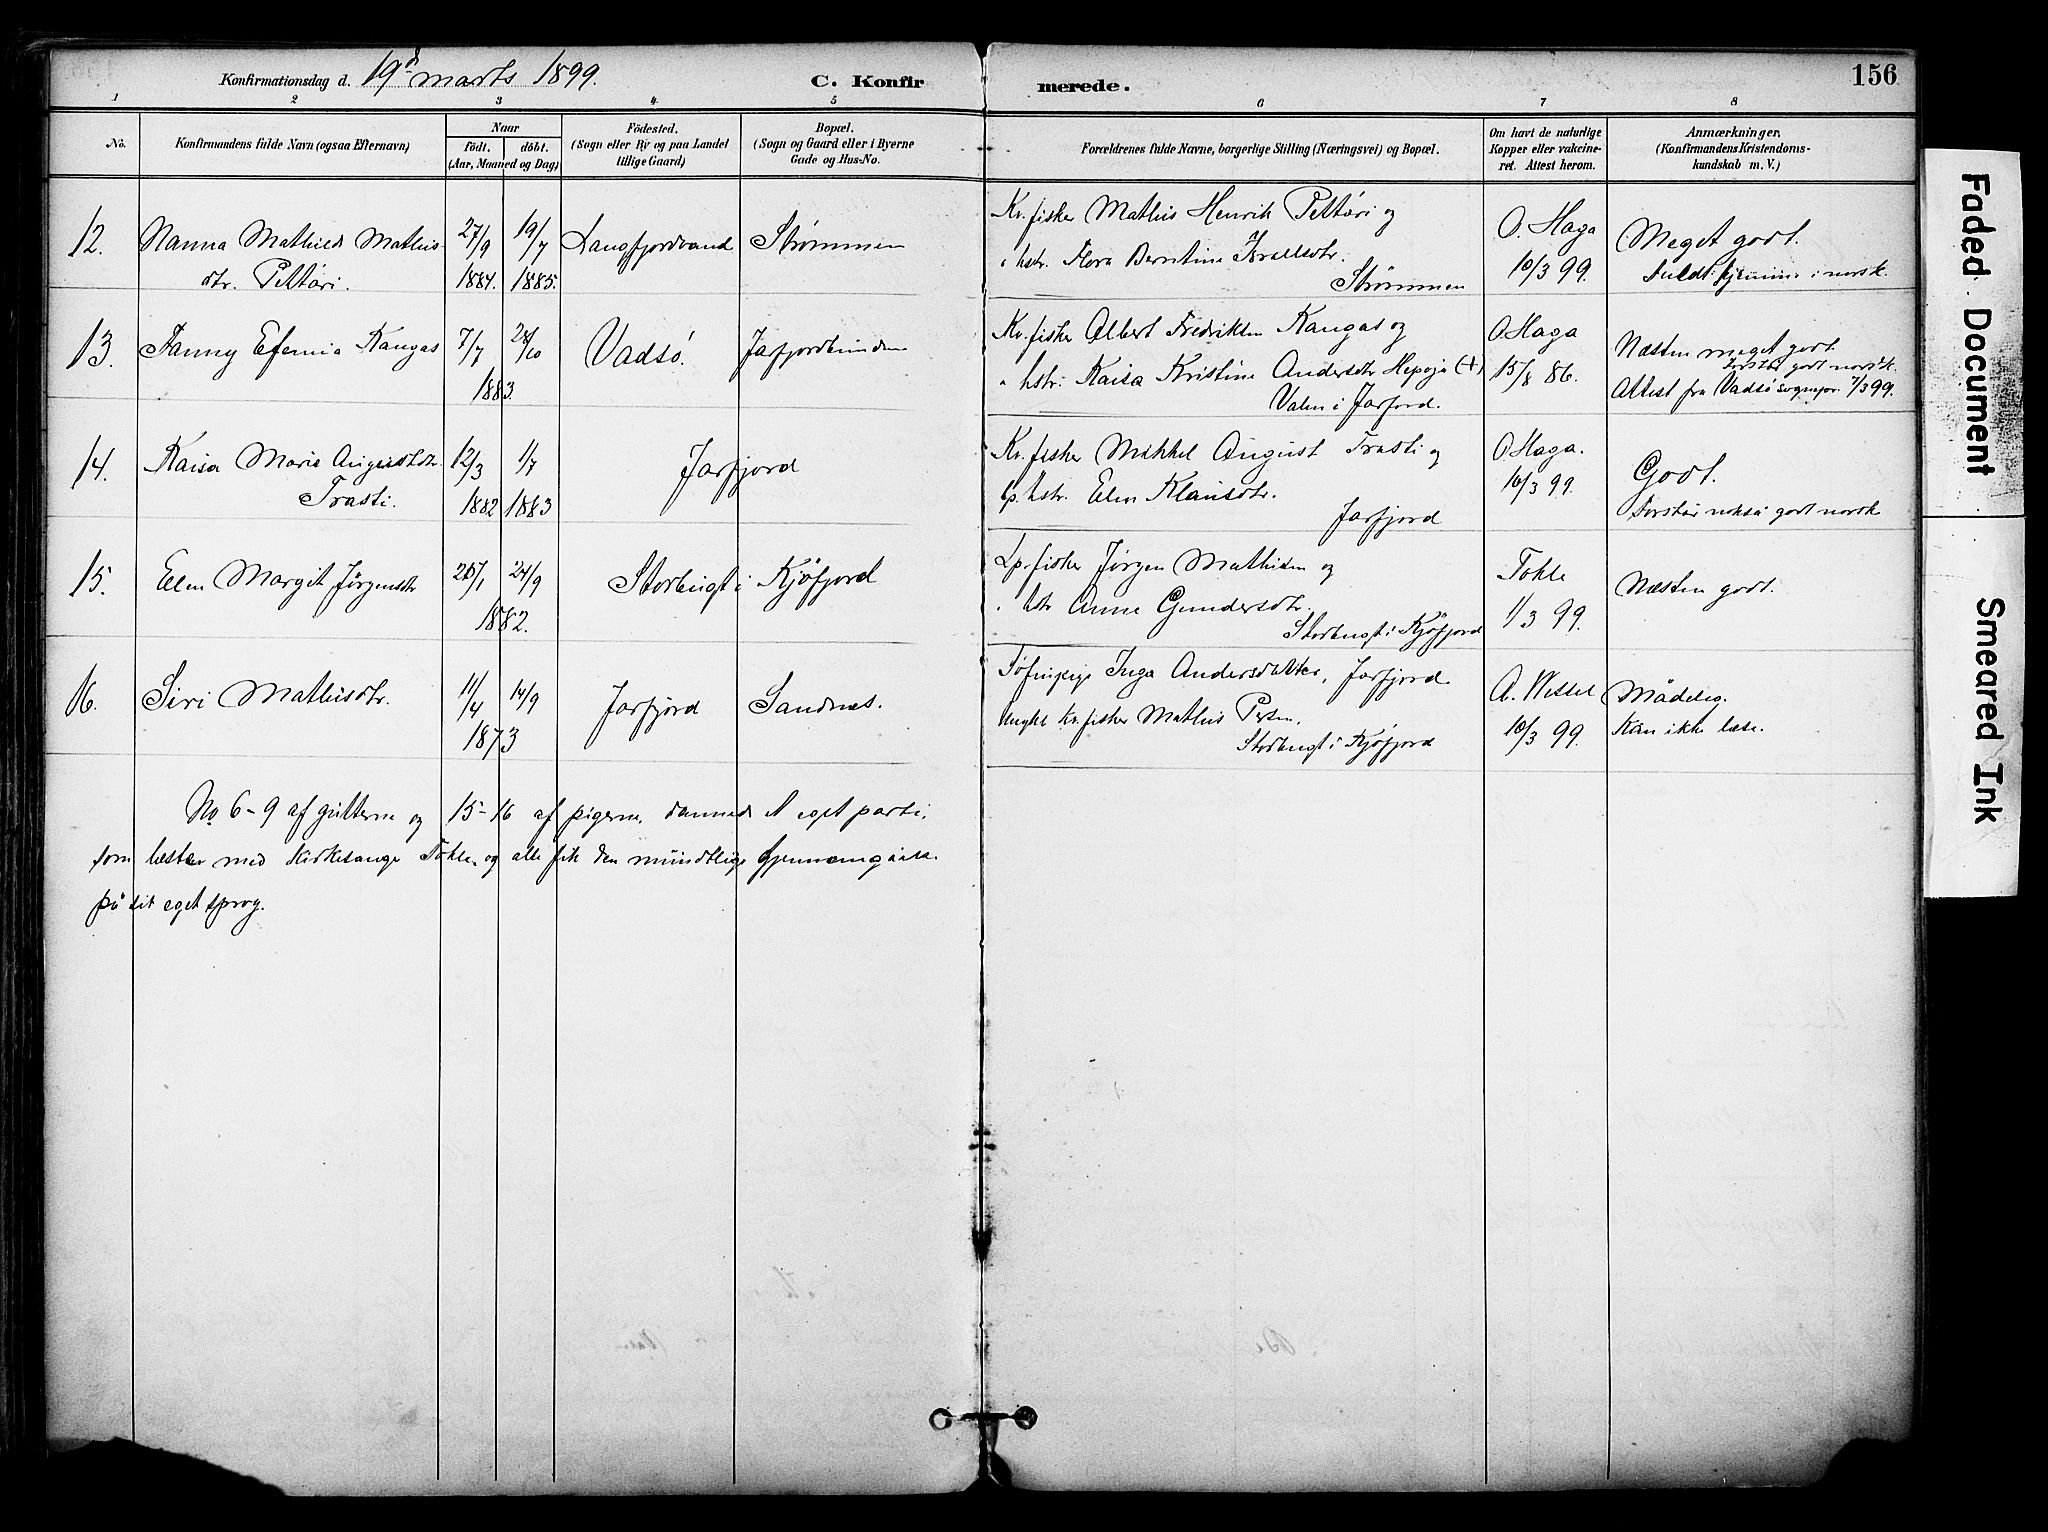 Konfirmationsdag d. 19d marts 1899. C. Konfir merede. 156
1 2 3 4 5 6 7 8
No. Konfirmandens fulde Navn (ogsaa Efternavn) Naar födt. döbt. (Aar, Maaned og Dag) Födested. (Sogn eller By og paa Landet tillige Gaard) Bopæl. (Sogn og Gaard eller i Byerne Gade og Hus-No.
Forældrenes fulde Navne, borgerlige Stilling (Næringsvei) og Bopæl. Om havt de naturlige Kopper eller vakcineret. Attest herom. Anmærkninger. (Konfirmandens Kristendomskundskab m. V.)
12. Nanna Mathilde Mathis- 27/9 19/7 Langfjordvand Strømmen
dtr. Pettäri. 1884. 1885.
Kv. fisker Mathis Henrik Pettäri og
hstr. Flora Berntine Israelsdtr.
Strømmen
O. Haga
10/3 99.
Meget godt.
i norsk.
13. Fanny Efemia Kangas 7/7 28/10 Vadsö. Jarfjordbunden
1883.
Kv. fisker Albert Fredriksen Kangas og
hstr. Kaisa Kristine Andersdtr Hepoja (+)
Valen i Jarfjord.
O. Haga
15/8 86.
Næsten meget godt.
Forstår godt norsk.
Attest fra Vadsö sognepr. 7/3 99.
14. Kaisa Marie Augustdtr. 12/3 1/7 Jarfjord
Trasti. 1882 1883
Kv. fisker Mikkel August Trasti og
lp. hstr. Elen Klausdtr.
Jarfjord
O. Haga.
10/3 99.
Godt.
Forstår nokså godt norsk
15. Elen Margit Jörgensdtr 20/1 24/9 Storbugt i Kjöfjord
1882.
Lp. fisker Jörgen Mathisen og
hstr Anne Gundersdtr.
Storbugt i Kjöfjord
Tokle
1/3 99.
Næsten godt.
16. Siri Mathisdtr. 11/4 14/9 Jarfjord Sandnes.
1873
Inga Andersdatter, Jarfjord
Ungkl kv. fisker Mathis Persen,
Storbugt i Kjöfjord
A. Wessel
10/3 99.
Mådelig.
Kan ikke læse.
No 6-9 af gutterne og 15-16 af pigerne dannede et eget parti,
som læster med kirkesanger Tokle, og alle fik den mundtlige gjennemgåelse
på sit eget sprog.
Faded Document
Smeared Ink